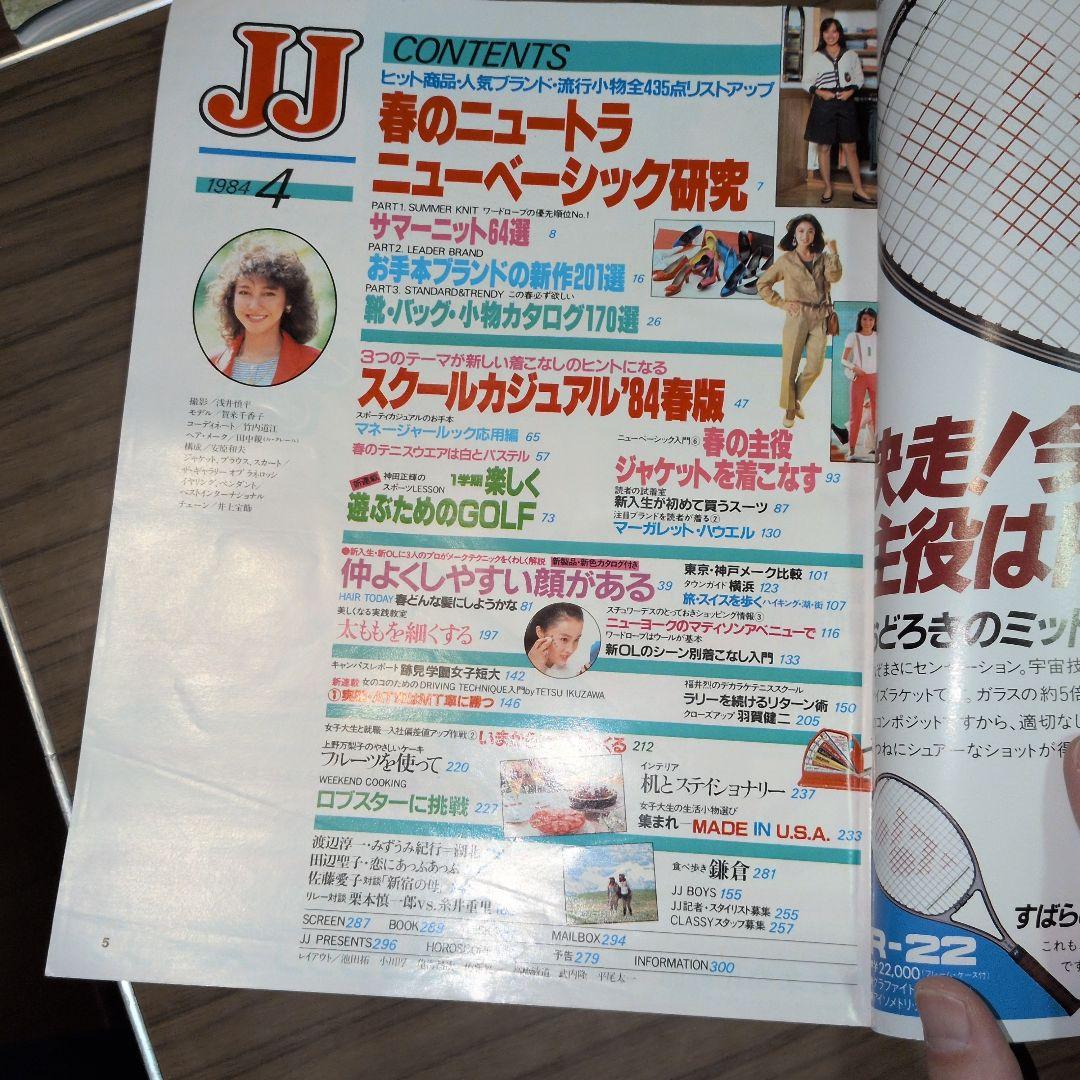 JJ
1984 4
CONTENTS
ヒット商品・人気ブランド・流行小物全435点リストアップ
春のニュートラ
ニューベーシック研究 7
PART1. SUMMER KNIT ワードローブの優先順位No.1
サマーニット64選 8
PART2. LEADER BRAND
お手本ブランドの新作201選 16
PART3. STANDARD&TRENDY この春必ず欲しい
靴・バッグ・小物カタログ170選 26
3つのテーマが新しい着こなしのヒントになる
スクールカジュアル'84春版 47
スポーティカジュアルのお手本
マネージャールック応用編 65
春のテニスウエアは白とパステル 57
新連載 神田正輝の
スポーツLESSON 1学期 楽しく
遊ぶためのGOLF 73
ニューベーシック入門⑥ 春の主役
ジャケットを着こなす 93
読者の試着室
新入生が初めて買うスーツ 87
注目ブランドを読者が着る②
マーガレット・ハウエル 130
●新入生・新OLに3人のプロがメークテクニックをくわしく解説 新製品・新色カタログ付き
仲よくしやすい顔がある 39
HAIR TODAY 春どんな髪にしようかな 81
美しくなる実践教室
太ももを細くする 197
東京・神戸メーク比較 101
タウンガイド 横浜 123
旅・スイスを歩く ハイキング・湖・街 107
スチュワーデスのとっておきショッピング情報③
ニューヨークのマディソンアベニューで 116
ワードローブはウールが基本
新OLのシーン別着こなし入門 133
キャンパスレポート 跡見学園女子短大 142
新連載 女のコのためのDRIVING TECHNIQUE入門 by TETSU IKUZAWA
に勝つ 146
福井烈のデカラケテニススクール
ラリーを続けるリターン術 150
クローズアップ 羽賀健二 205
女子大生と就職―入社偏差値アップ作戦② いまから くる 212
上野万梨子のやさしいケーキ
フルーツを使って 220
WEEKEND COOKING
ロブスターに挑戦 227
インテリア
机とステイショナリー 237
女子大生の生活小物選び
集まれ―MADE IN U.S.A. 233
渡辺淳一・みずうみ紀行=湖北
田辺聖子・恋にあっぷあっぷ
佐藤愛子 対談「新宿の母」
リレー対談 栗本慎一郎vs.糸井重里
食べ歩き 鎌倉 281
JJ BOYS 155
JJ記者・スタイリスト募集 255
CLASSYスタッフ募集 257
SCREEN 287 BOOK 289 MAILBOX 294
JJ PRESENTS 296 HOROSCOPE 予告 279 INFORMATION 300
レイアウト/池田拓 武内隆 平尾太一
撮影/浅井慎平
モデル/賀来千香子
コーディネート/竹内道江
ヘア・メーク/田中親
構成/安原和夫
ジャケット、ブラウス、スカート/
ザ・ギャラリー オブ ラネロッシ
イヤリング、ペンダント/
ベストインターナショナル
チェーン/井上宝飾
5
快走!
主役は
おどろきのミッド
まさにセンセーション。宇宙技
イズラケットで ガラスの約5倍
コンポジットですから、適切なし
つねにシュアーなショットが得
R-22
¥22,000(フレーム・ケース付)
グラファイト
アイソメトリ
すばら
これも
です